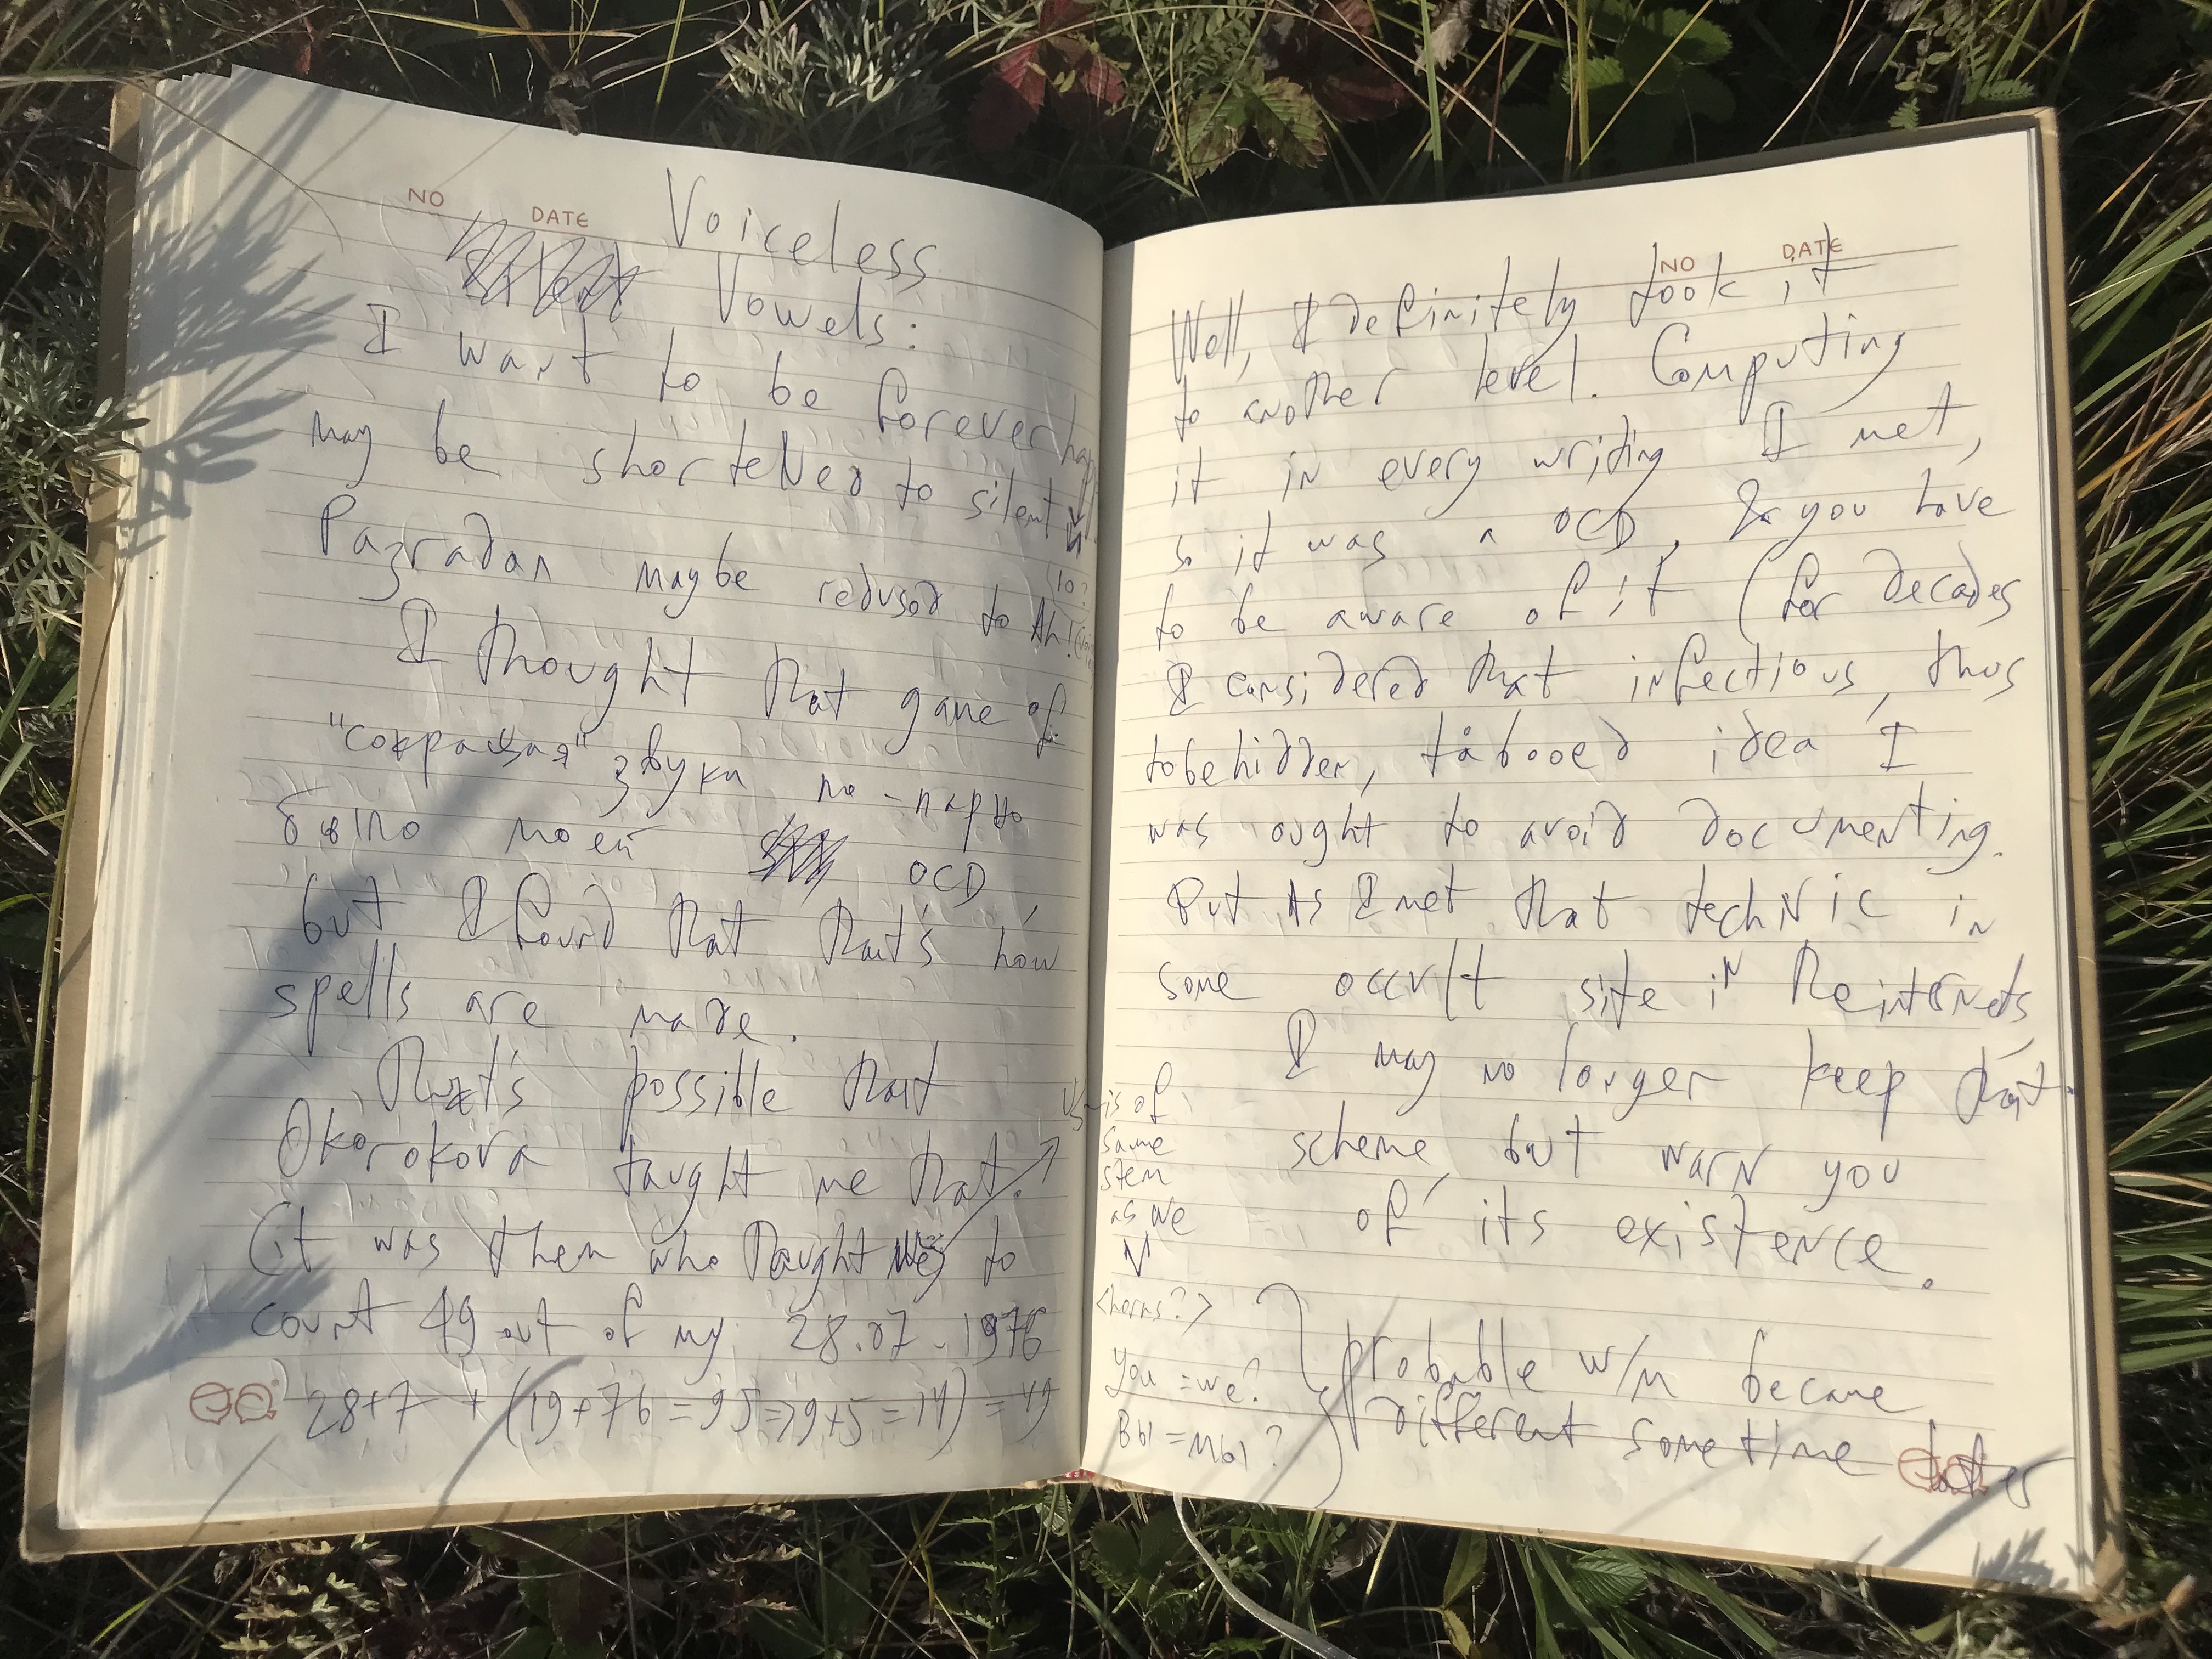 NO
DATE
Voiceless
Vowels:
I want to be forever
may be shorteNed to silent
Pagradan maybe reduced to
I thought that game of
"сокращая" звуки по-парно
было моей OCD
but I found that that's how
spells are made.
That's possible that
Okorokova taught me that?
(it was then who taught to
count 49 out of my 28.07.1976
28+7+(19+76=95=>9+5=14)=49
NO
DATE
Well, I definitely took it
to another level. Computing
it in every wriding I met,
so it was a OCD, as you have
to be aware of it (for decades
I considered that infectious, thus
to be hidden, tabooed idea I
was ought to avoid documenting.
But as I met that techNic in
some occult site in the internets
I may no longer keep that
scheme but warn you
of its existence.
is of
same
stem
as we
you = we?
Вы = мы?
Probable w/m became
different sometime